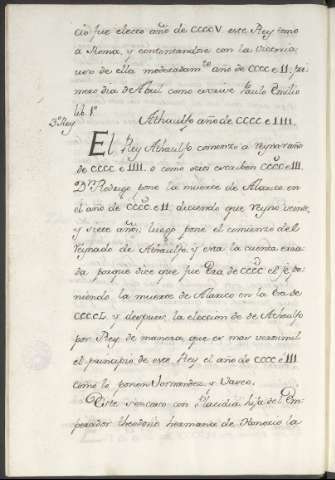 cio fue electo año de CCCCV este Rey tomo
a Roma, y contentandose con la victoria
uso de ella moderadam.te año de CCCC e II. pri
mero dia de Abril como escrive Paulo Emilio
lib. 1º
3º Rey Athaulfo año de CCCC e IIII.
El Rey Athaulfo comenzo a reynar año
de CCCC e IIII. o como otros escriben CCCC e III.
Dn Rodrigo pone la muerte de Alarico en
el año de CCCC e II. diciendo que reyno veinte,
y siete años; luego pone el comienzo del
Reynado de Athaulfo y esta la cuenta erra
da porque dice que fue Era de CCCC el po
niendo la muerte de Alarico en la Era de
CCCCL y despues, la eleccion de de Athaulfo
por Rey de manera que es mas verisimil
el principio de este Rey el año de CCCC e III
como lo ponen Vernandez y Vaseo.
Este se caso con Placidia hija del Em
perador Theodosio hermana de Honorio la